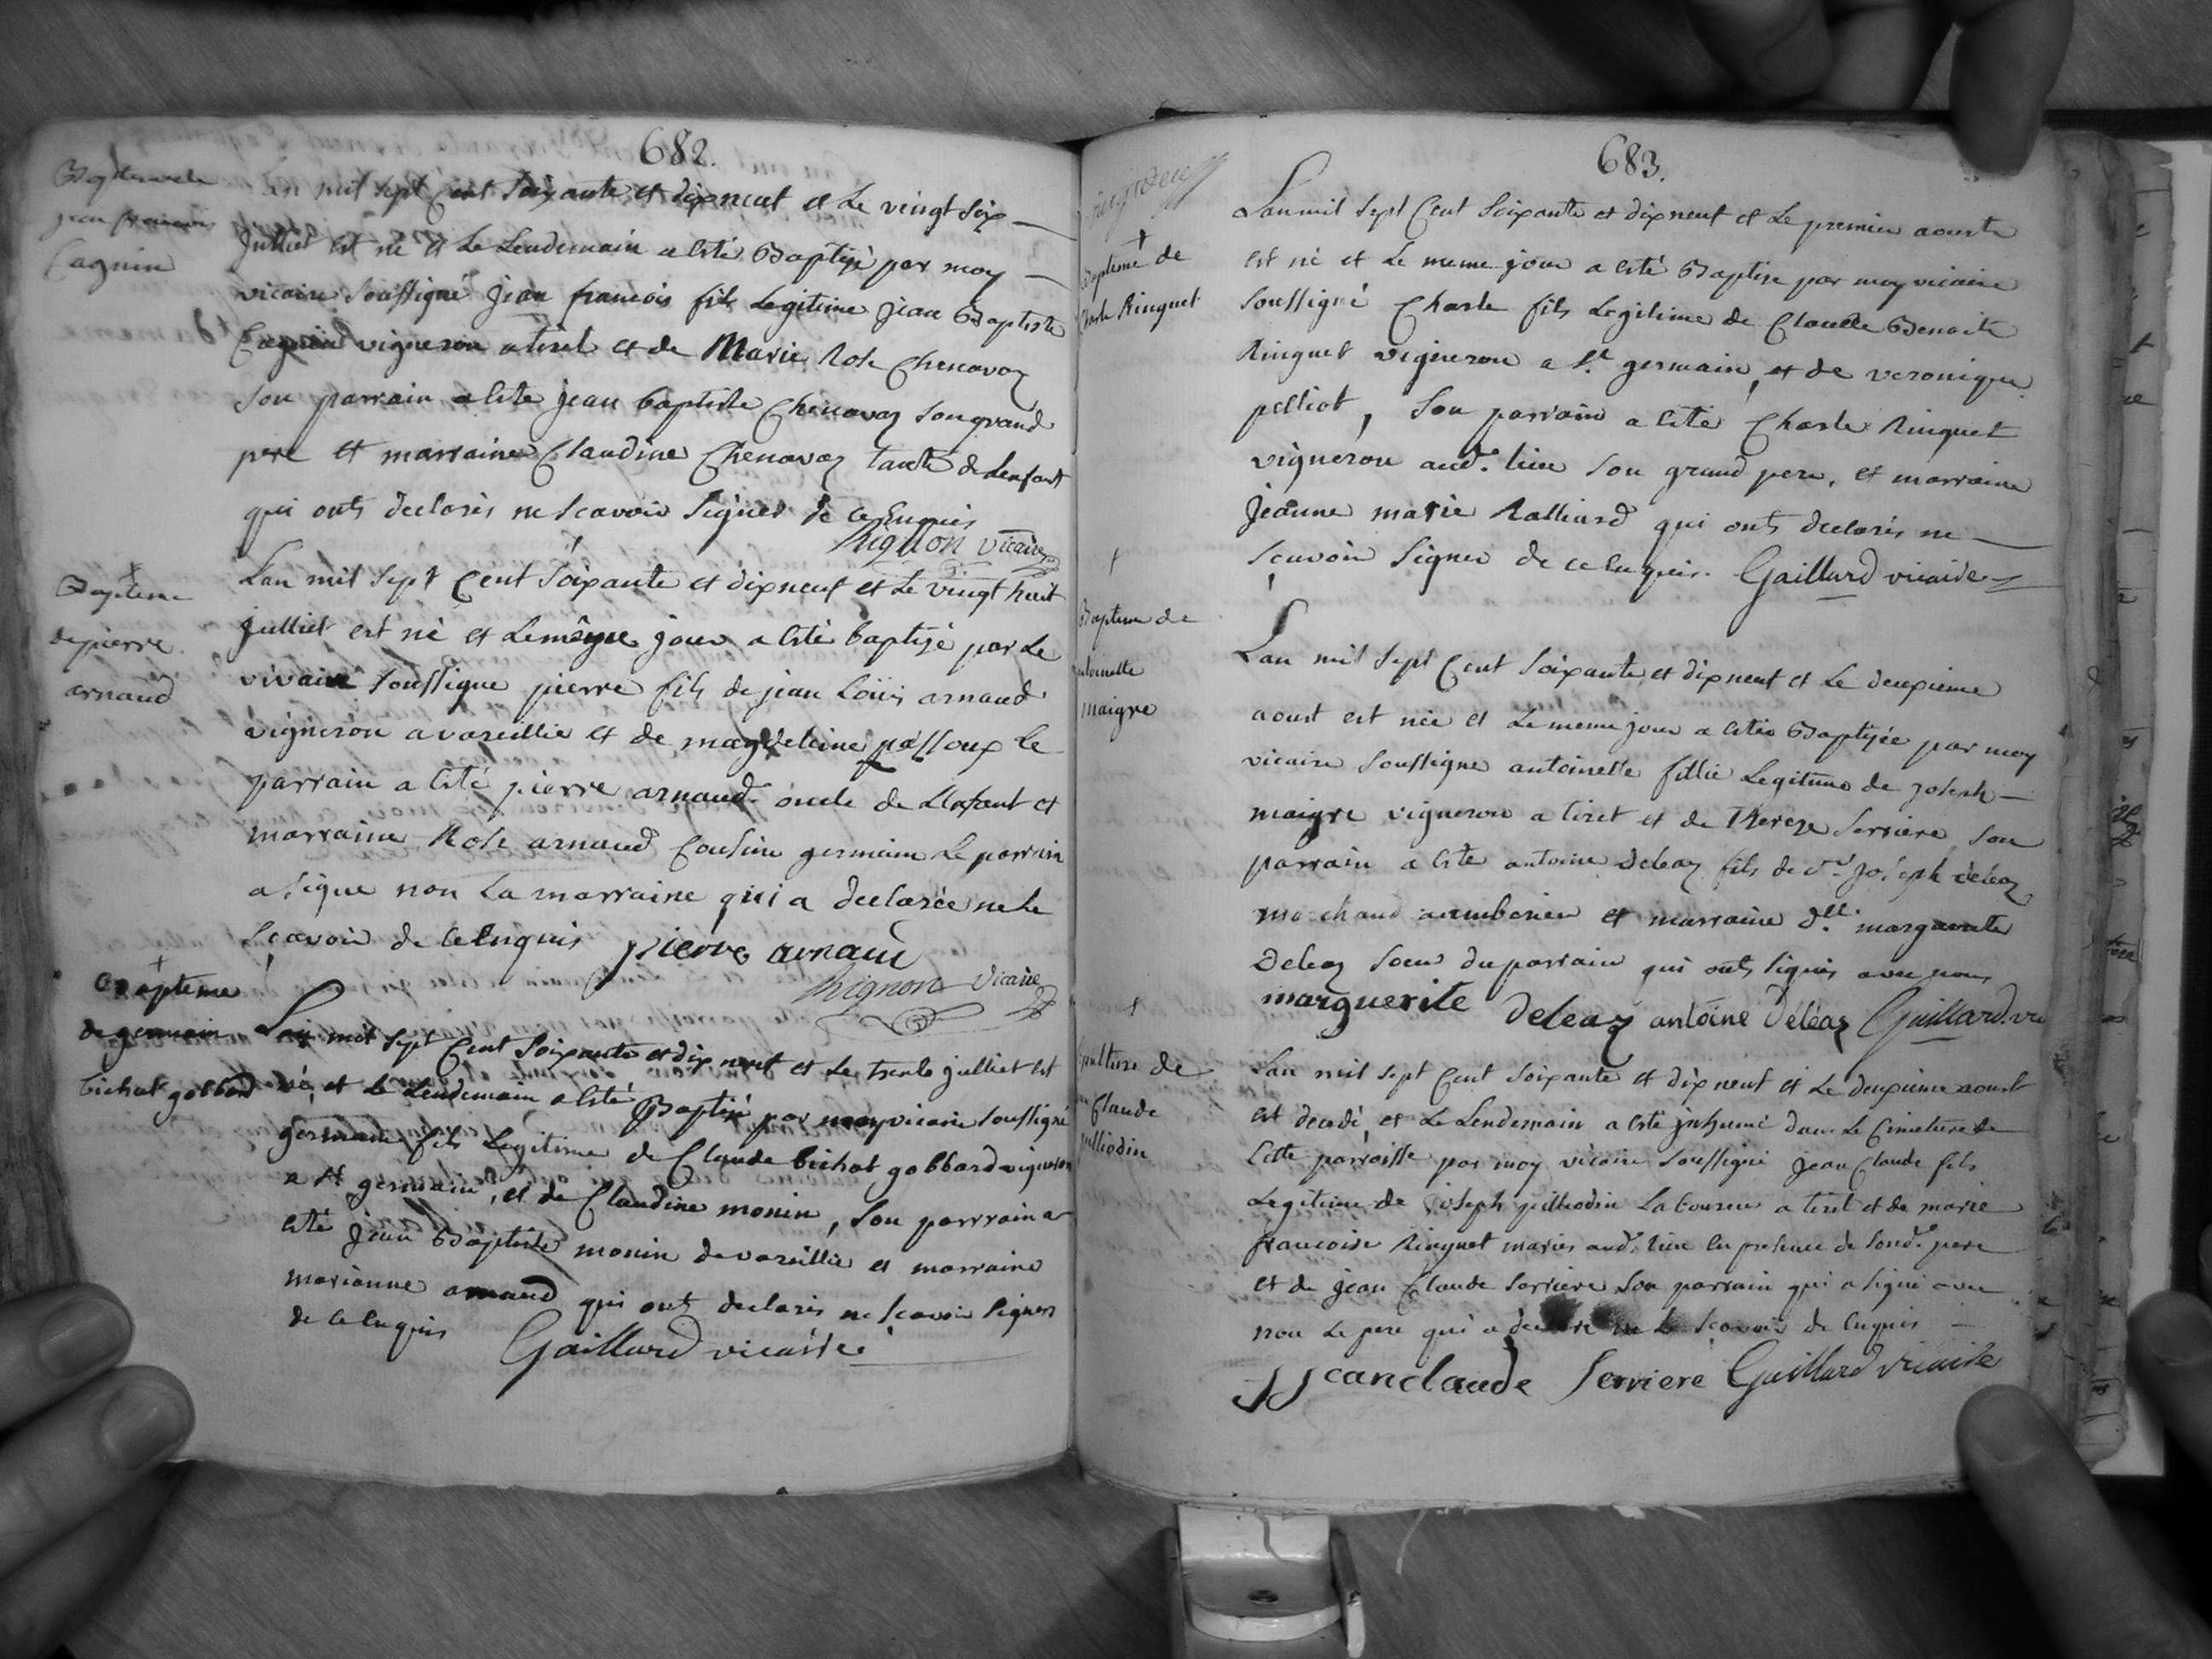 682.
Bapteme de
jean francois
Cagnin
Lan mil sept Cent soixante et dix neuf et Le vingt six
Julliet est né et Le Lendemain a esté Baptisé par moy
vicaire soussigné Jean francois fils Legitime Jean Baptiste
Cagnin vigneron a tiret et de Marie Rose Chenavaz
son parrain a esté jean baptiste Chenavaz son grand
pere et marraine Claudine Chenavaz tante de Lenfant
qui onts declarés ne scavoir signer de ce Enquis
Rignon vicaire
Bapteme
de pierre
arnaud
Lan mil sept Cent soixante et dix neuf et Le vingt huit
Julliet est né et Le même jour a esté baptisé par Le
vivaire soussigne pierre fils de jean Loüis arnaud
vigneron a vareillie et de magdeleine passoux le
parrain a esté pierre arnaud oncle de Lenfant et
marraine Rose arnaud Cousine germaine Le parrain
a signe non La marraine qui a declarée ne Le
scavoir de ce Enquis pierre arnaud
Rignon vicaire
Bapteme
de germain
bichat gobbard
Lan mil sept Cent soixante et dix neuf et Le trente julliet est
né, et Le Lendemain a esté Baptisé par moy vicaire soussigné
germain fils Legitime de Claude bichat gobbard vigneron
a st germain, et de Claudine monin, son parrain a
esté Jean Baptiste monin de vareillie et marraine
marianne arnaud qui onts declarés ne scavoir signer
de ce enquis Gaillard vicaire
683.
Bapteme de
Charle Ringuet
Lan mil sept Cent soixante et dix neuf et Le premier aouste
est né et Le meme jour a esté Baptise par moy vicaire
soussigné Charle fils Legitime de Claude Benoite
Ringuet vigneron a st germain, et de veronique
pelliot, son parrain a esté Charle Ringuet
vigneron aud.e lieu son grand pere, et marraine
Jeanne marie Ralliard qui onts declarés ne
scavoir signer de ce enquis. Gaillard vicaire
Bapteme de
antoinette
maigre
Lan mil sept Cent soixante et dix neuf et Le deuxieme
aoust est née et Le meme jour a estée Baptisée par moy
vicaire soussigne antoinette fillie Legitime de joseph
maigre vigneron a tiret et de Thereze serriere son
parrain a esté antoine Deleaz fils de sr. joseph deleaz
marchand a amberieu et marraine dlle. margarite
Deleaz soeur du parrain qui onts signés avec nous
marguerite deleaz antoine Deléaz Gaillard. vic
sepulture de
jean Claude
julliodin
Lan mil sept Cent soixante et dix neuf et Le deuxieme aoust
est decedé, et Le Lendemain a esté inhumé dans Le Cimetiere de
Cette parroisse par moy vicaire soussigné Jean Claude fils
Legitime de joseph julliodin Laboureur a tiret et de marie
francoise Ringuet mariés aud.e lieu en presence de sond.e pere
et de jean Claude serriere son parrain qui a signé avec
nou Le pere qui a declaré ne Le scavoir de enquis
Jeanclaude serviere Gaillard vicaire